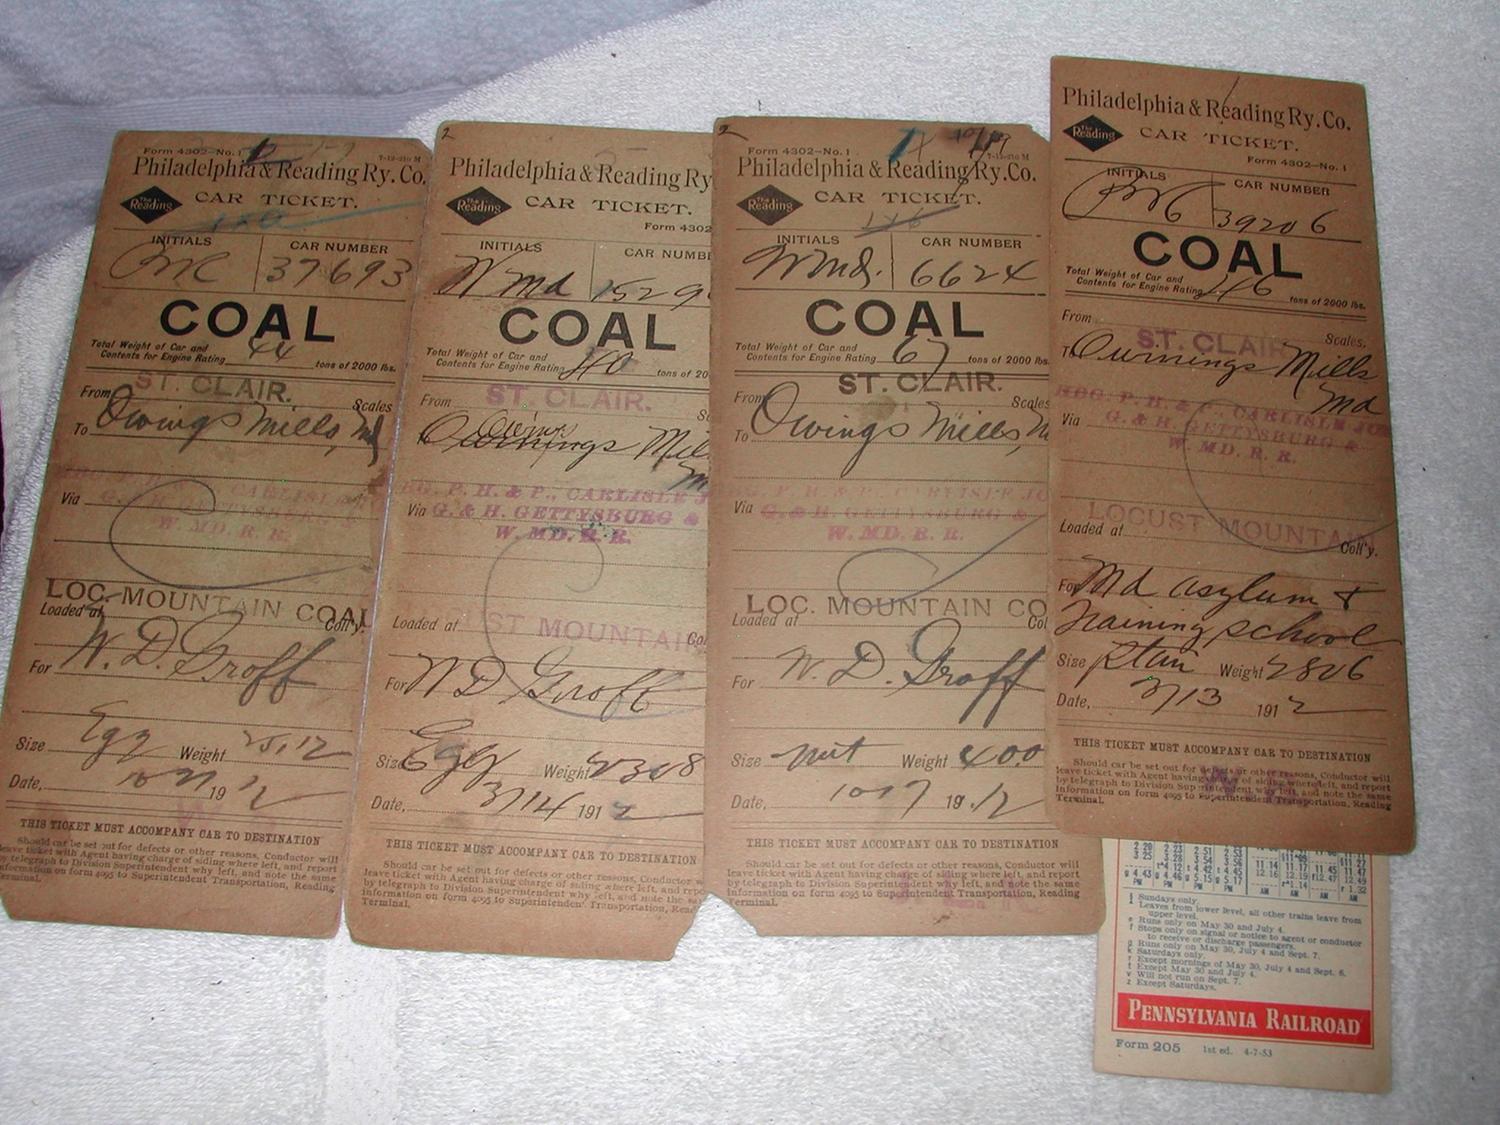 Form 4302—No. 1
7-12-210 M
Philadelphia & Reading Ry. Co.
The Reading
CAR TICKET.
INITIALS
CAR NUMBER
37693
COAL
Total Weight of Car and
Contents for Engine Rating 44 tons of 2000 lbs.
ST. CLAIR.
From Scales
To Owings Mills, Md
Via
G. & H. GETTYSBURG &
W. MD. R. R.
LOC. MOUNTAIN COAL
Loaded at Coll'y.
For W. D. Groff
Size Egg Weight
Date, 1912
THIS TICKET MUST ACCOMPANY CAR TO DESTINATION
Should car be set out for defects or other reasons, Conductor will
leave ticket with Agent having charge of siding where left, and report
by telegraph to Division Superintendent why left, and note the same
information on form 4095 to Superintendent Transportation, Reading
Terminal.
2
Philadelphia & Reading Ry
The Reading
CAR TICKET.
Form 4302
INITIALS
CAR NUMB
W Md 1529
COAL
Total Weight of Car and
Contents for Engine Rating 40 tons of 20
ST. CLAIR.
From
Owings Mil
HDG. P. H. & P., CARLISLE J
Via G. & H. GETTYSBURG &
W. MD. R. R.
Loaded at
ST MOUNTAI
For W D Groff
Size Egg Weight 2308
Date, 3/14 1912
THIS TICKET MUST ACCOMPANY CAR TO DESTINATION
Should car be set out for defects or other reasons, Conductor will
leave ticket with Agent having charge of siding where left, and repor
by telegraph to Division Superintendent why left, and note the sa
information on form 4095 to Superintendent Transportation, Rea
Terminal.
2
Form 4302—No. 1
7-12-210 M
Philadelphia & Reading Ry. Co.
The Reading
CAR TICKET.
INITIALS
CAR NUMBER
W Md. 6624
COAL
Total Weight of Car and
Contents for Engine Rating 67 tons of 2000 lbs.
ST. CLAIR.
From Scales
To Owings Mills, M
P. H. & P., CARLISLE JO
Via G. & H. GETTYSBURG &
W. MD. R. R.
LOC. MOUNTAIN CO
Loaded at Col
For W. D. Groff
Size nut Weight 400
Date, 10 17 1912
THIS TICKET MUST ACCOMPANY CAR TO DESTINATION
Should car be set out for defects or other reasons, Conductor will
leave ticket with Agent having charge of siding where left, and report
by telegraph to Division Superintendent why left, and note the same
information on form 4095 to Superintendent Transportation, Reading
Terminal.
Philadelphia & Reading Ry. Co.
The Reading
CAR TICKET.
Form 4302—No. 1
INITIALS
CAR NUMBER
39206
COAL
Total Weight of Car and
Contents for Engine Rating 46 tons of 2000 lbs.
From Scales.
ST. CLAIR
To Ownings Mills
Md
HDG. P. H. & P., CARLISLE JO
Via G. & H. GETTYSBURG &
W. MD. R. R.
LOCUST MOUNTAIN
Loaded at Coll'y.
For Md asylum &
Training School
Size Weight 2806
Date, 3/13 1912
THIS TICKET MUST ACCOMPANY CAR TO DESTINATION
Should car be set out for defects or other reasons, Conductor will
leave ticket with Agent having charge of siding where left, and report
by telegraph to Division Superintendent why left, and note the same
information on form 4095 to Superintendent Transportation, Reading
Terminal.
Sundays only.
Leaves from lower level, all other trains leave from
upper level.
e Runs only on May 30 and July 4.
f Stops only on signal or notice to agent or conductor
to receive or discharge passengers.
g Runs only on May 30, July 4 and Sept. 7.
k Saturdays only.
r Except mornings of May 30, July 4 and Sept. 6.
t Except May 30 and July 4.
v Will not run on Sept. 7.
z Except Saturdays.
PENNSYLVANIA RAILROAD
Form 205 1st ed. 4-7-53